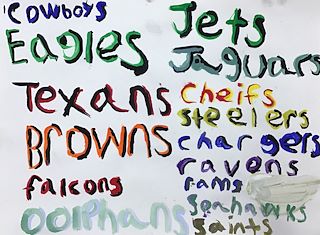 Cowboys
Eagles
Texans
BROWNS
falcons
oolphans
Jets
Jaguars
Cheifs
steelers
chargers
ravens
rams
seahawks
saints